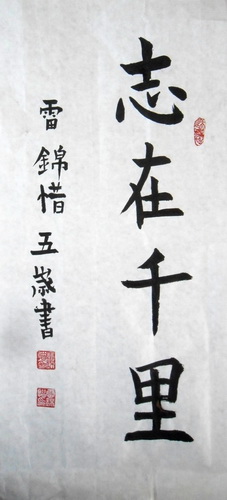 志在千里
雷錦惜五歲書